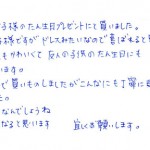 子様のたん生日プレゼントにて買いました。
子様ですが ドレスみたいなので 喜ばれると
もかわいくて 友人の子供のたん生日にも
います。
で 買いものしましたがこんなにも丁寧に
なんでしょうね
なると思います 宜しくお願いします。